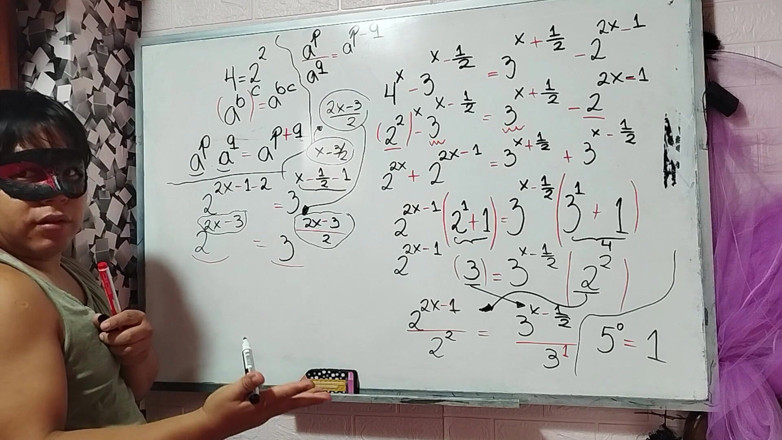 4 = 2²
(a^b)^c = a^(bc)
a^p a^q = a^(p+q)
a^p/a^q = a^(p-q)
(2x-3)/2
x-3/2
2^(2x-1-2) = 3^(x-1/2-1)
2^(2x-3) = 3^((2x-3)/2)
4^x - 3^(x-1/2) = 3^(x+1/2) - 2^(2x-1)
(2²)^x - 3^(x-1/2) = 3^(x+1/2) - 2^(2x-1)
2^(2x) + 2^(2x-1) = 3^(x+1/2) + 3^(x-1/2)
2^(2x-1) (2¹+1) = 3^(x-1/2) (3¹+1)
4
2^(2x-1) (3) = 3^(x-1/2) (2²)
2^(2x-1)/2² = 3^(x-1/2)/3¹
5⁰ = 1